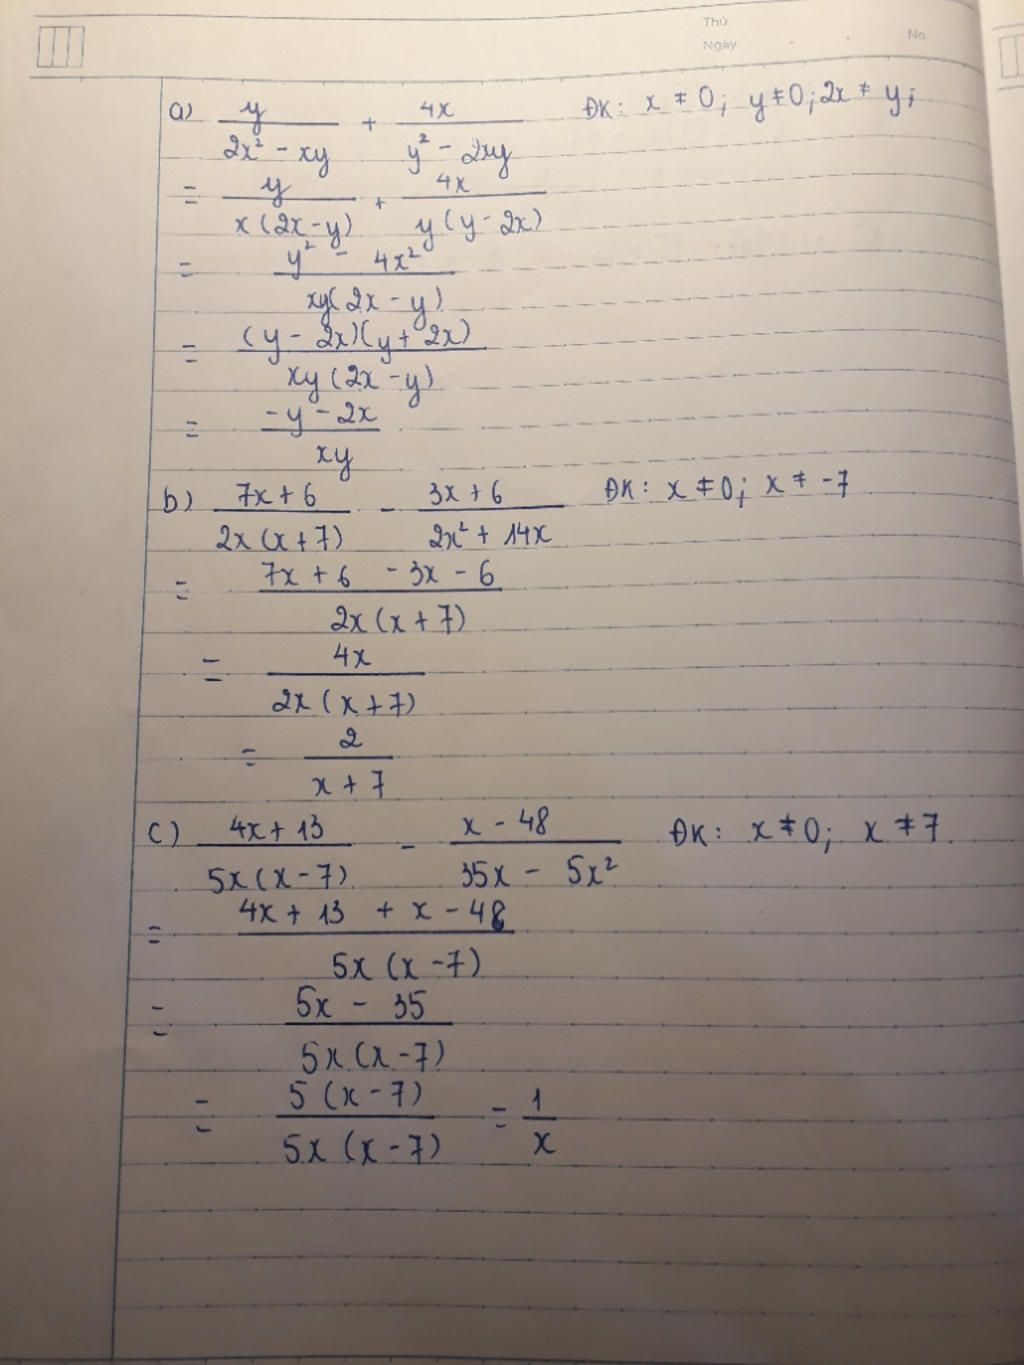 Thứ
Ngày No
a) y/(2x² - xy) + 4x/(y² - 2xy) ĐK: x ≠ 0; y ≠ 0; 2x ≠ y;
= y/(x(2x-y)) + 4x/(y(y-2x))
= (y² - 4x²)/(xy(2x-y))
= ((y-2x)(y+2x))/(xy(2x-y))
= (-y-2x)/(xy)
b) (7x+6)/(2x(x+7)) - (3x+6)/(2x² + 14x) ĐK: x ≠ 0; x ≠ -7
= (7x+6 -3x-6)/(2x(x+7))
= 4x/(2x(x+7))
= 2/(x+7)
c) (4x+13)/(5x(x-7)) - (x-48)/(35x - 5x²) ĐK: x ≠ 0; x ≠ 7.
= (4x+13 + x-48)/(5x(x-7))
= (5x - 35)/(5x(x-7))
= (5(x-7))/(5x(x-7)) = 1/x